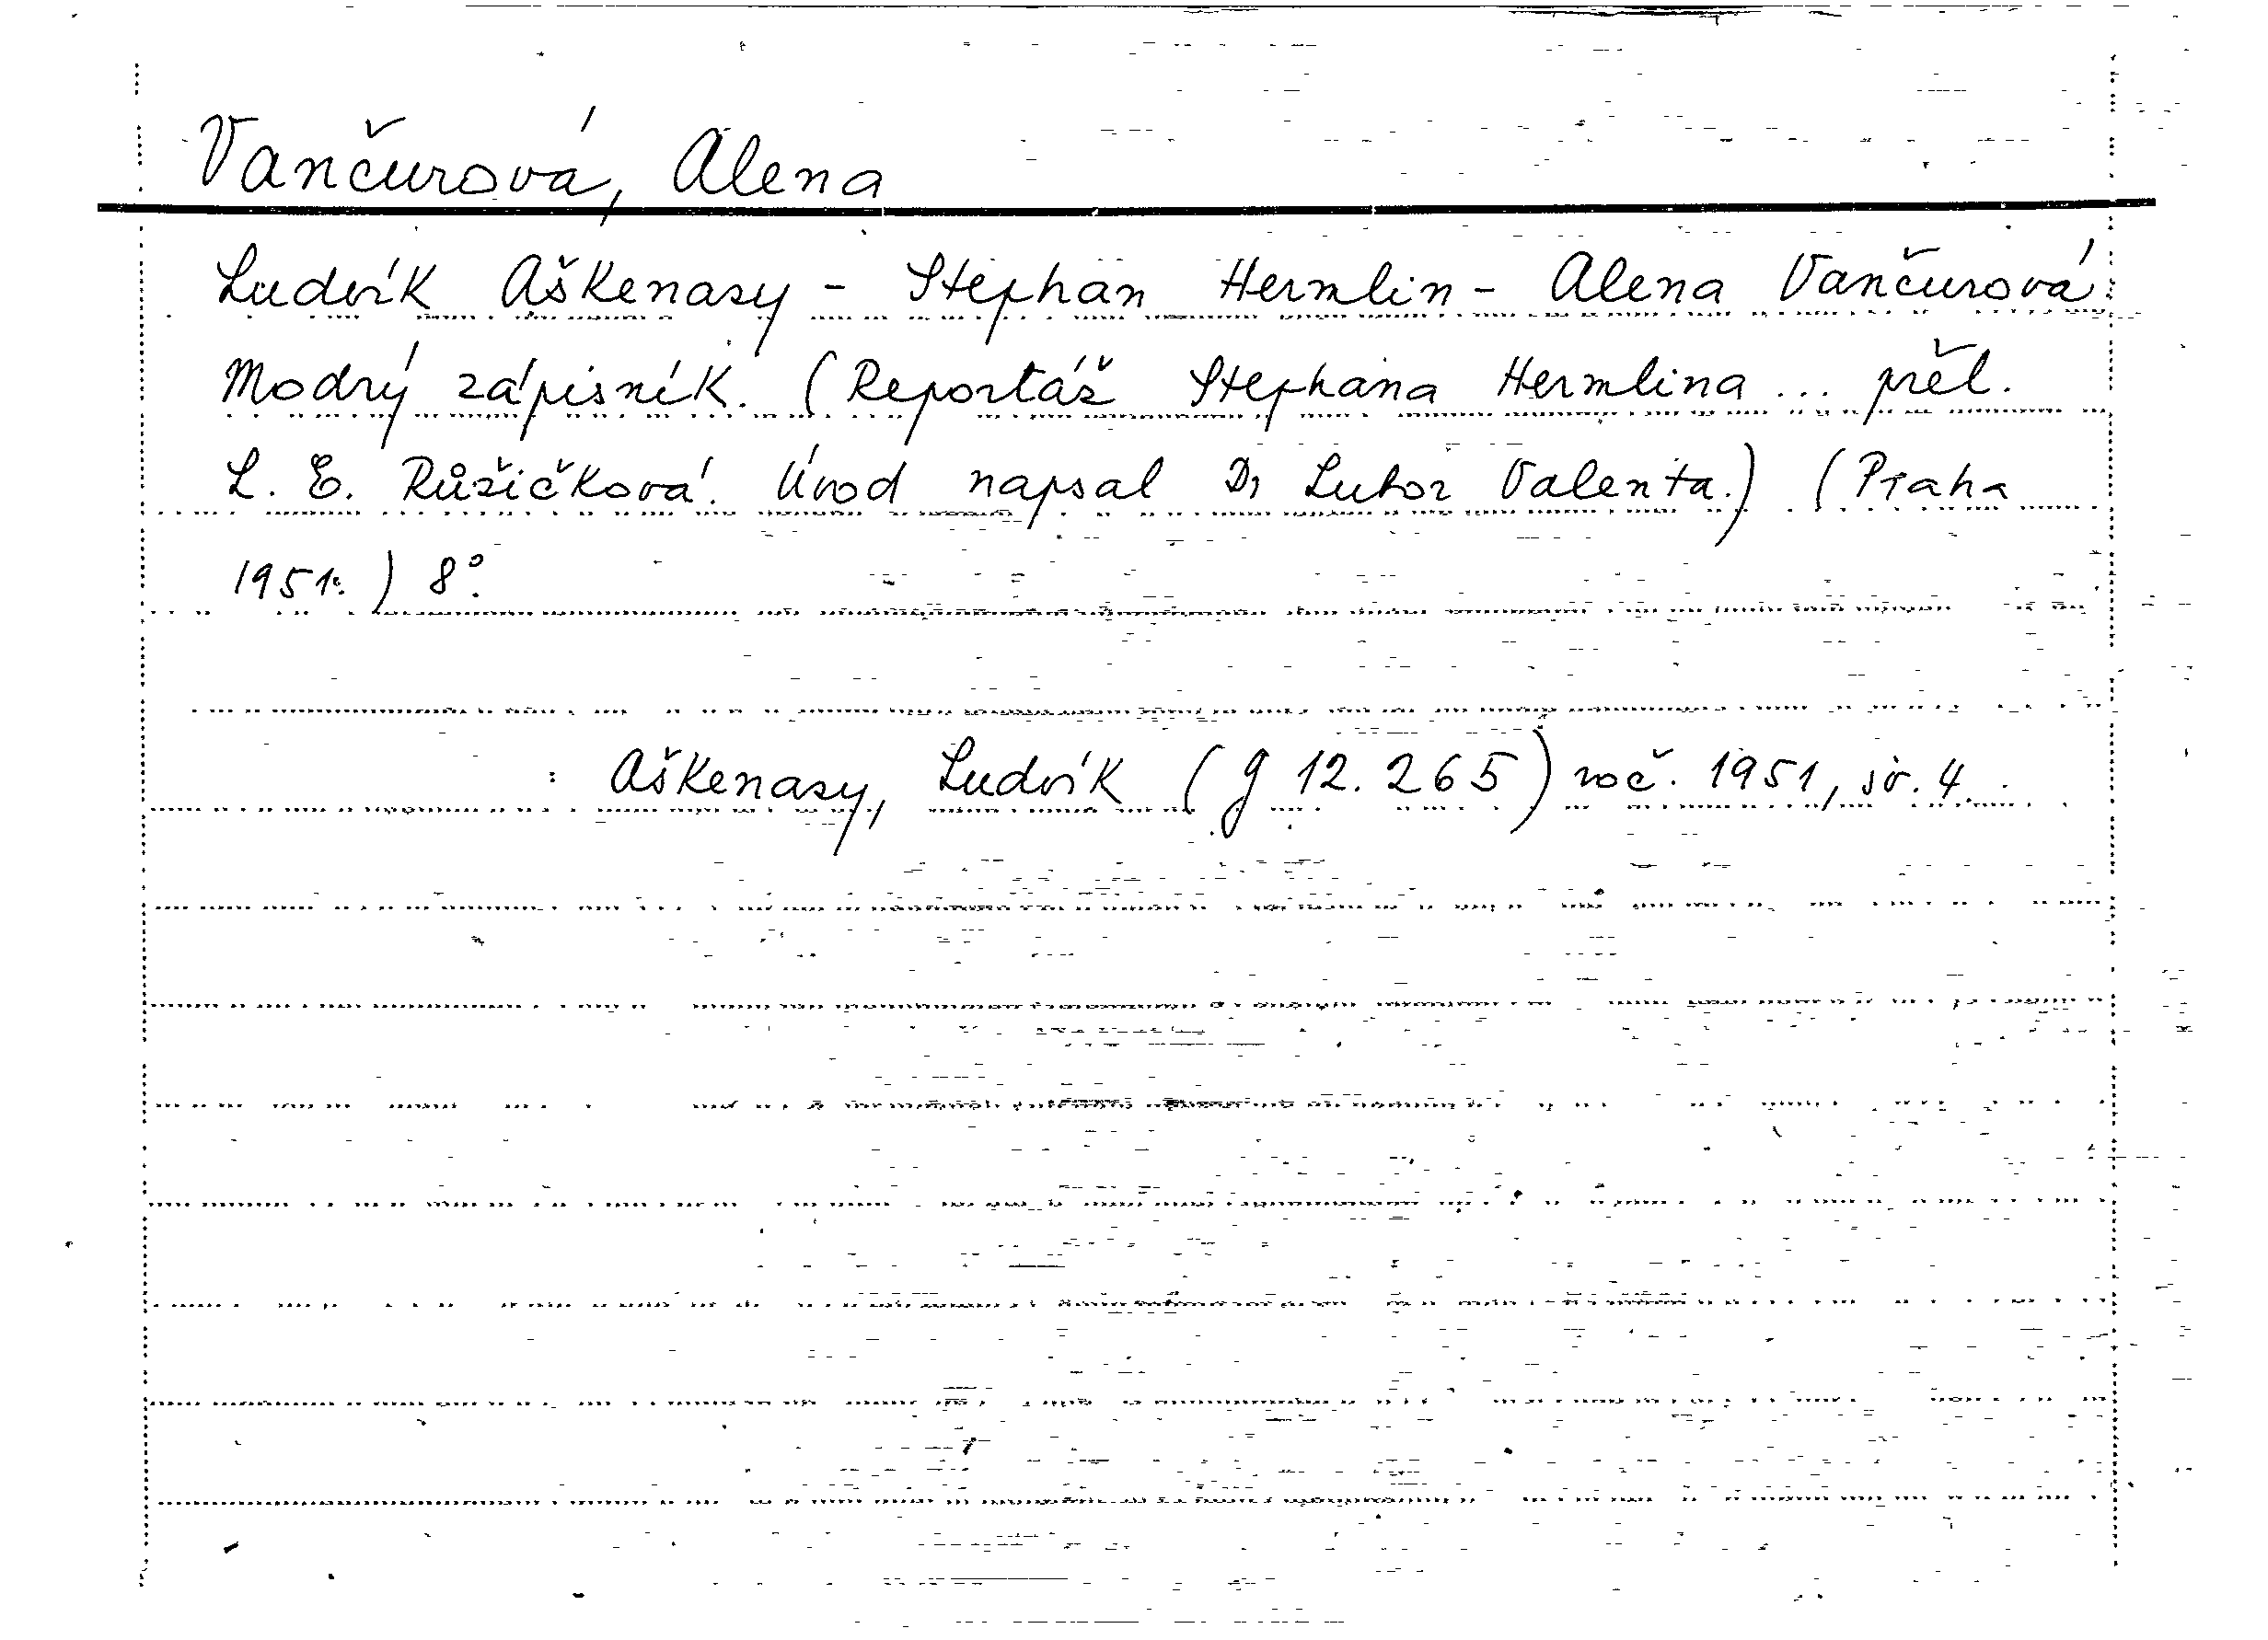 Vančurová, Alena
Ludvík Aškenasy - Stephan Hermlin - Alena Vančurová:
Modrý zápisník. (Reportáž Stephana Hermlina ... přel.
L. E. Růžičková. Úvod napsal Dr Lubor Valenta.) (Praha
1951.) 8°.
: Aškenasy, Ludvík (g 12.265) roč. 1951, sv. 4.